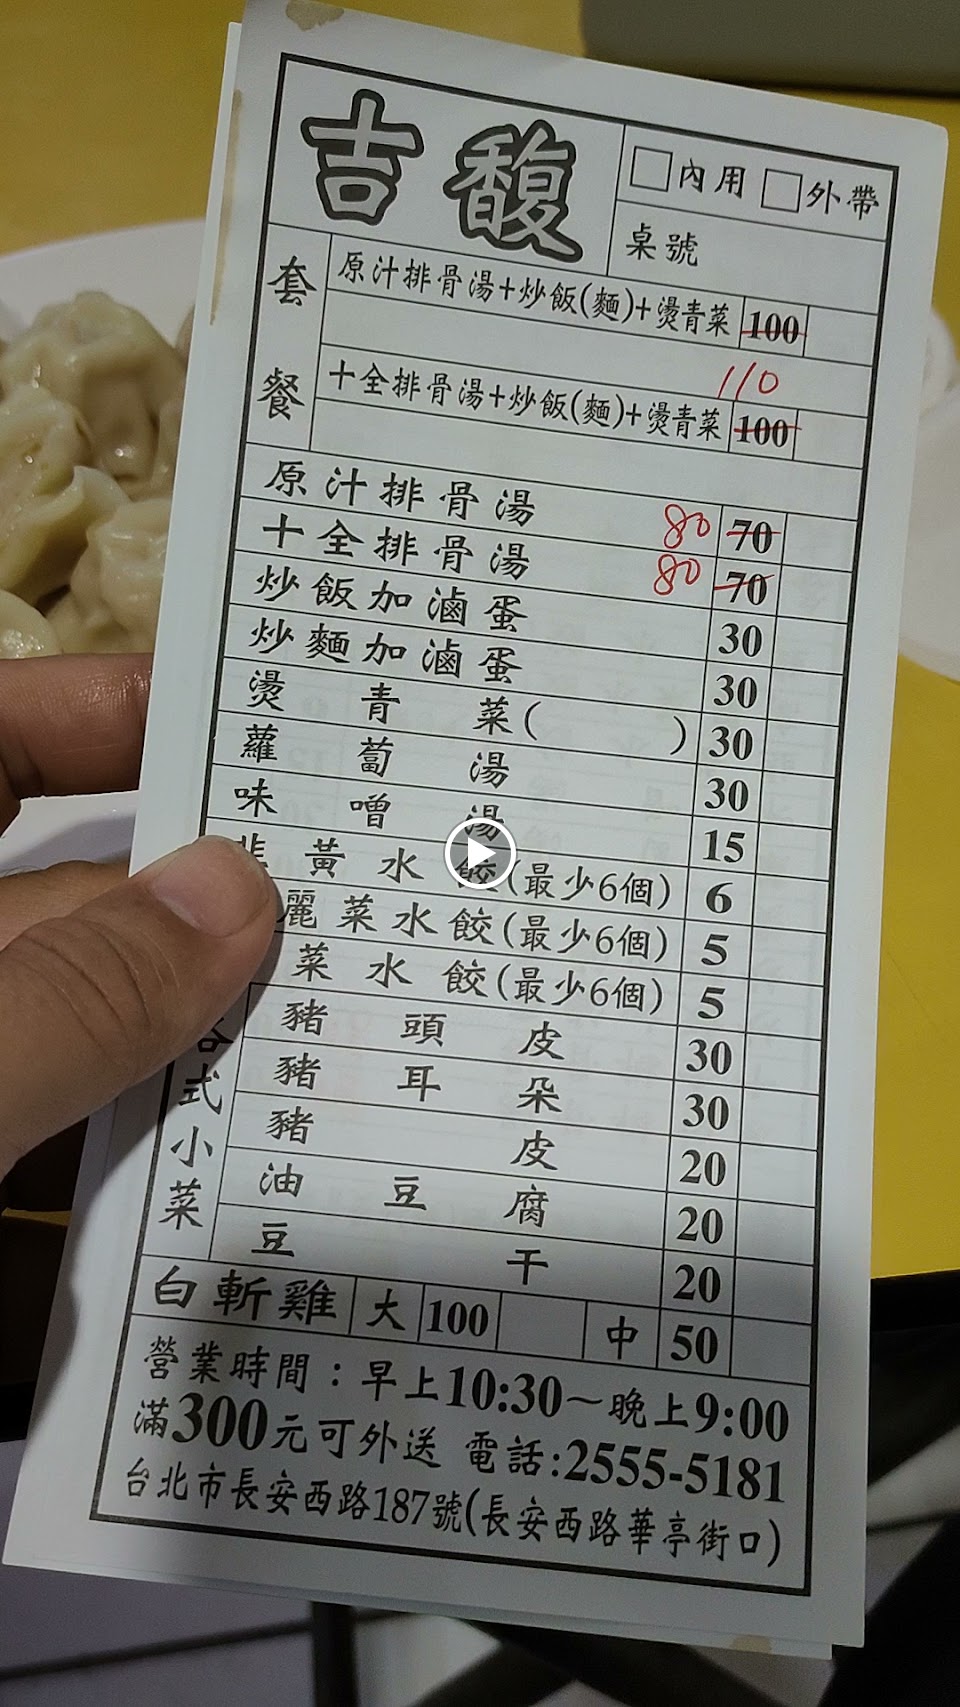 吉馥
□內用 □外帶
桌號
套餐
原汁排骨湯+炒飯(麵)+燙青菜 100
110
十全排骨湯+炒飯(麵)+燙青菜 100
原汁排骨湯 80 70
十全排骨湯 80 70
炒飯加滷蛋 30
炒麵加滷蛋 30
燙青菜( ) 30
蘿蔔湯 30
味噌湯 15
韭黃水餃(最少6個) 6
麗菜水餃(最少6個) 5
菜水餃(最少6個) 5
式小菜
豬頭皮 30
豬耳朵 30
豬皮 20
油豆腐 20
豆干 20
白斬雞 大 100 中 50
營業時間：早上10:30～晚上9:00
滿300元可外送 電話:2555-5181
台北市長安西路187號(長安西路華亭街口)